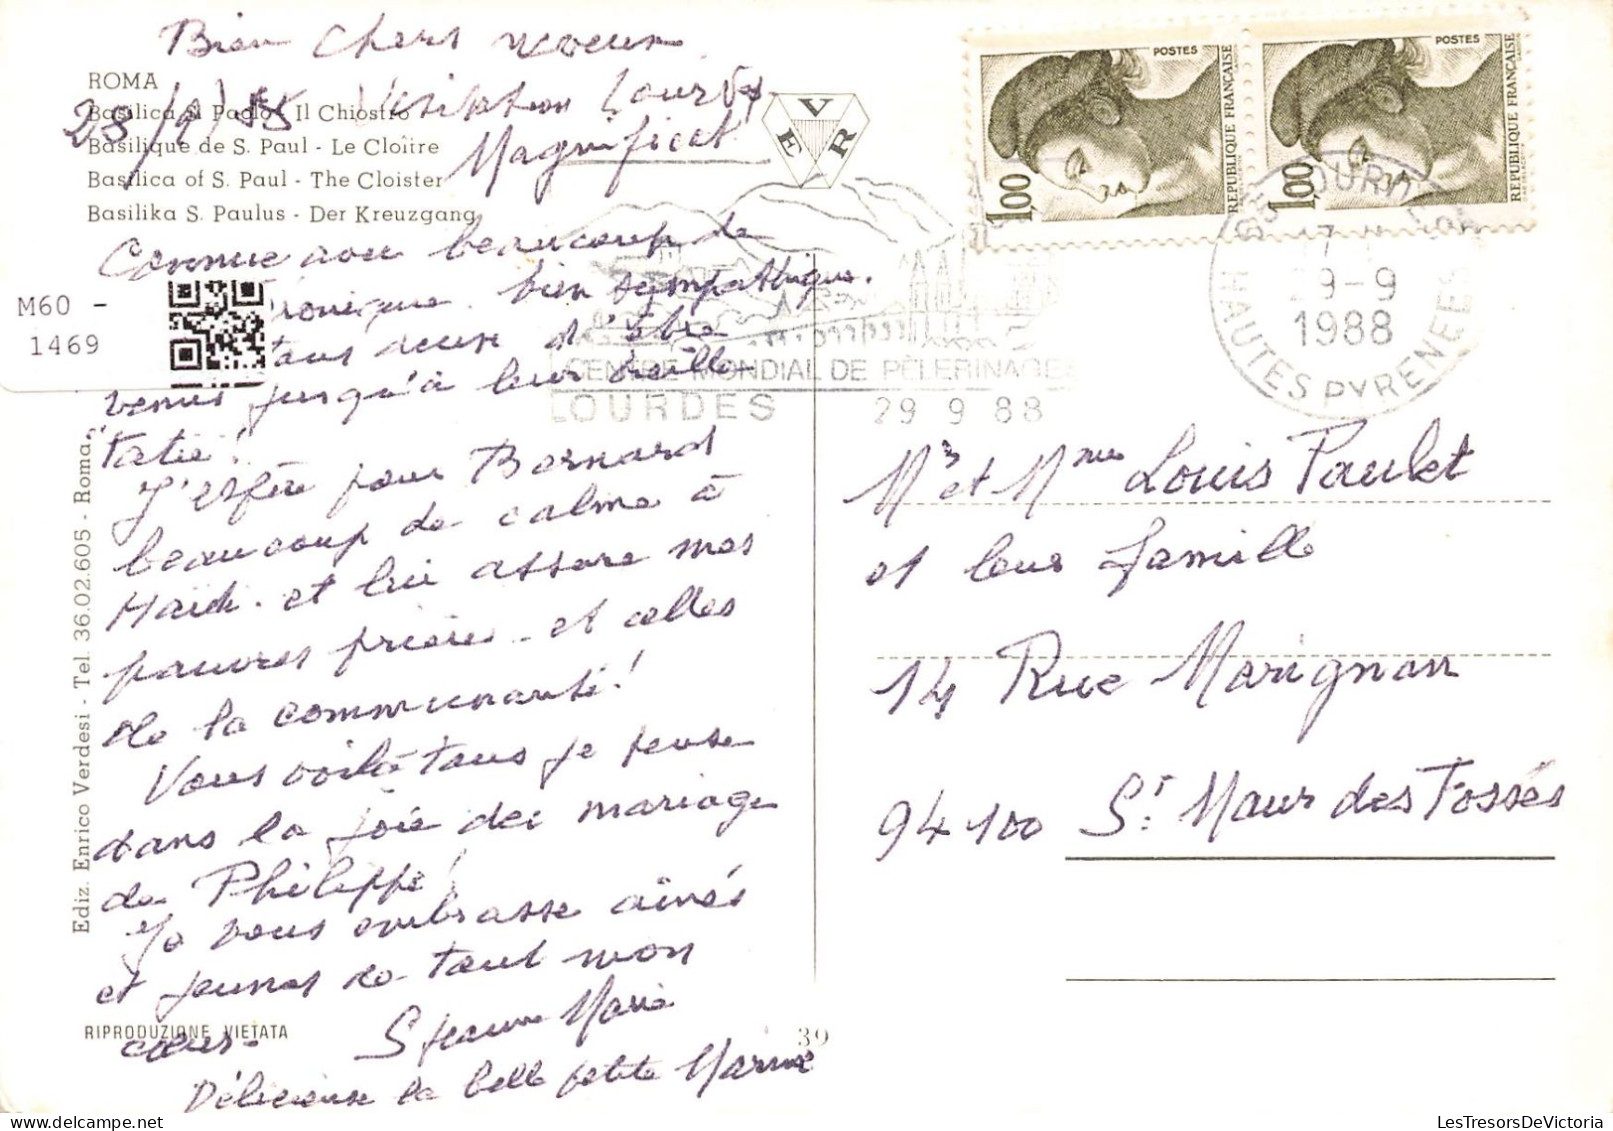 Bien Chers
ROMA
Basilica S. Paolo - Il Chiostro
Visitation Lourdes
Basilique de S. Paul - Le Cloître
Magnificat!
Basilica of S. Paul - The Cloister
Basilika S. Paulus - Der Kreuzgang
EVR
POSTES
1,00
REPUBLIQUE FRANÇAISE
POSTES
1,00
REPUBLIQUE FRANÇAISE
HAUTES PYRENEES
29-9
1988
CENTRE MONDIAL DE PÈLERINAGE
LOURDES 29 9 88
M60 -
1469
beaucoup de
bien sympathique.
tous deux d'être
venus jusqu'à leur vieille
"tatie"!
J'espère pour Bernard
beaucoup de calme à
Haïti - et lui assure mes
pauvres prières - et celles
de la communauté!
Vous voilà tous je pense
dans la joie du mariage
de Philippe!
Je vous embrasse aînés
et jeunes de tout mon
cœur - S Jeanne Marie
Délicieuse la belle petite
Ediz. Enrico Verdesi - Tel. 36.02.605 - Roma
RIPRODUZIONE VIETATA
39
Mr et Mme Louis Paulet
et leur famille
14 Rue Marignan
94100 St. Maur des Fossés
LesTresorsDeVictoria.com